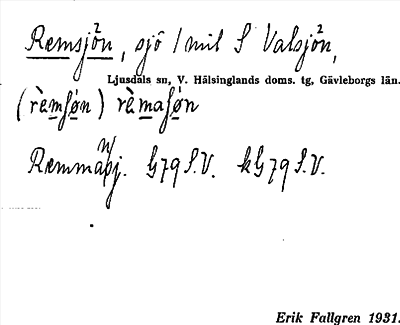 Remsjön, sjö 1 mil S Valsjön,
Ljusdals sn, V. Hälsinglands doms. tg, Gävleborgs län.
(rèmʃøn) rèmaʃøn
Remmasj. G79 S.V. kG79 S.V.
Erik Fallgren 1931.